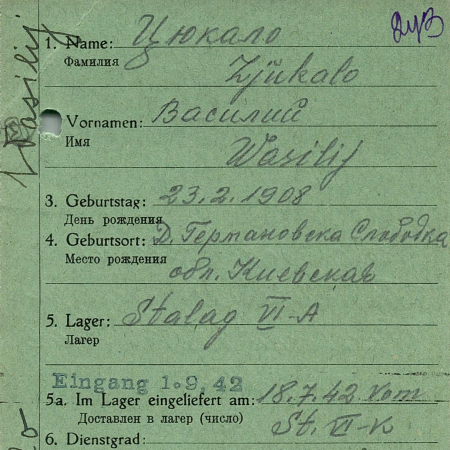 Wasilij
1. Name: Цюкало
Фамилия
Zjukalo
Vornamen: Василий
Имя
Wasilij
3. Geburtstag: 23.2.1908
День рождения
4. Geburtsort: Д. Германовска Слободка
Место рождения
обл. Киевская
5. Lager: Stalag VI-A
Лагер
Eingang 1.9.42
5a. Im Lager eingeliefert am: 18.7.42 vom
Доставлен в лагер (число)
St. VI-K
6. Dienstgrad: